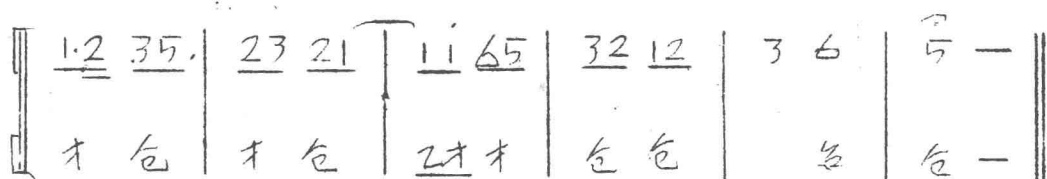 1.2 35. | 23 21 | 1i 65 | 32 12 | 3 6 | 5 — ‖
才 仓 | 才 仓 | 2才 才 | 仓 仓 | 台 | 仓 — ‖